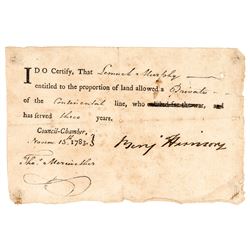 I DO Certify, That Lemuel Murphy
entitled to the proportion of land allowed a Private
of the Continental line, who enlisted for the war, and
has served three years.
Council-Chamber,
Novem 15th 1783.
Benj Harrison
Thos. Meriwether